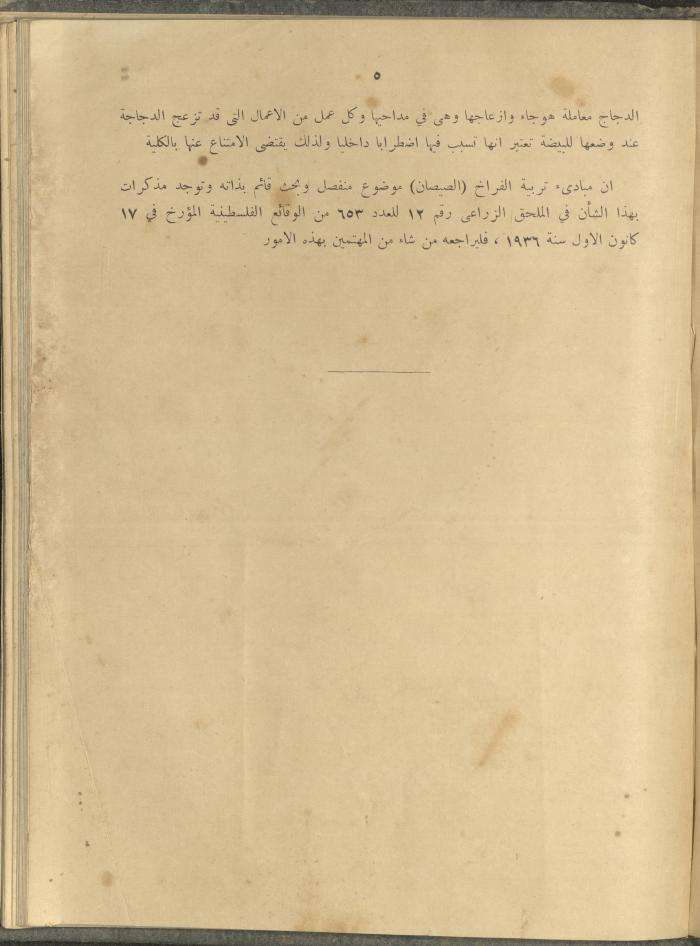 ٥
الدجاج معاملة هوجاء وازعاجها وهى في مداحيها وكل عمل من الاعمال التى قد تزعج الدجاجة
عند وضعها للبيضة تعتبر انها تسبب فيها اضطرابا داخليا ولذلك يقتضى الامتناع عنها بالكلية
ان مبادىء تربية الفراخ (الصيصان) موضوع منفصل وبحث قائم بذاته وتوجد مذكرات
بهذا الشأن في الملحق الزراعى رقم ١٢ للعدد ٦٥٣ من الوقائع الفلسطينية المؤرخ في ١٧
كانون الاول سنة ١٩٣٦ ، فليراجعه من شاء من المهتمين بهذه الامور